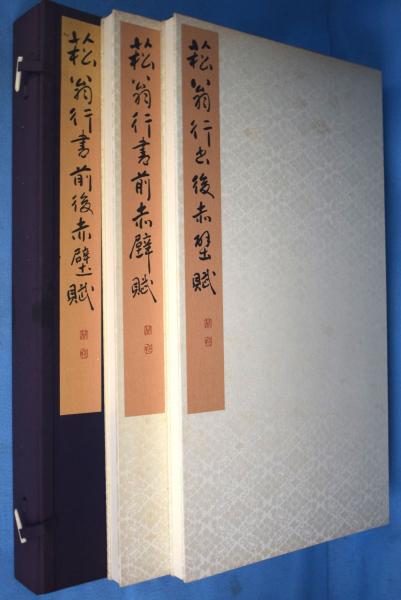 菘翁行書前後赤壁賦
菘翁行書前赤壁賦
菘翁行书後赤壁賦